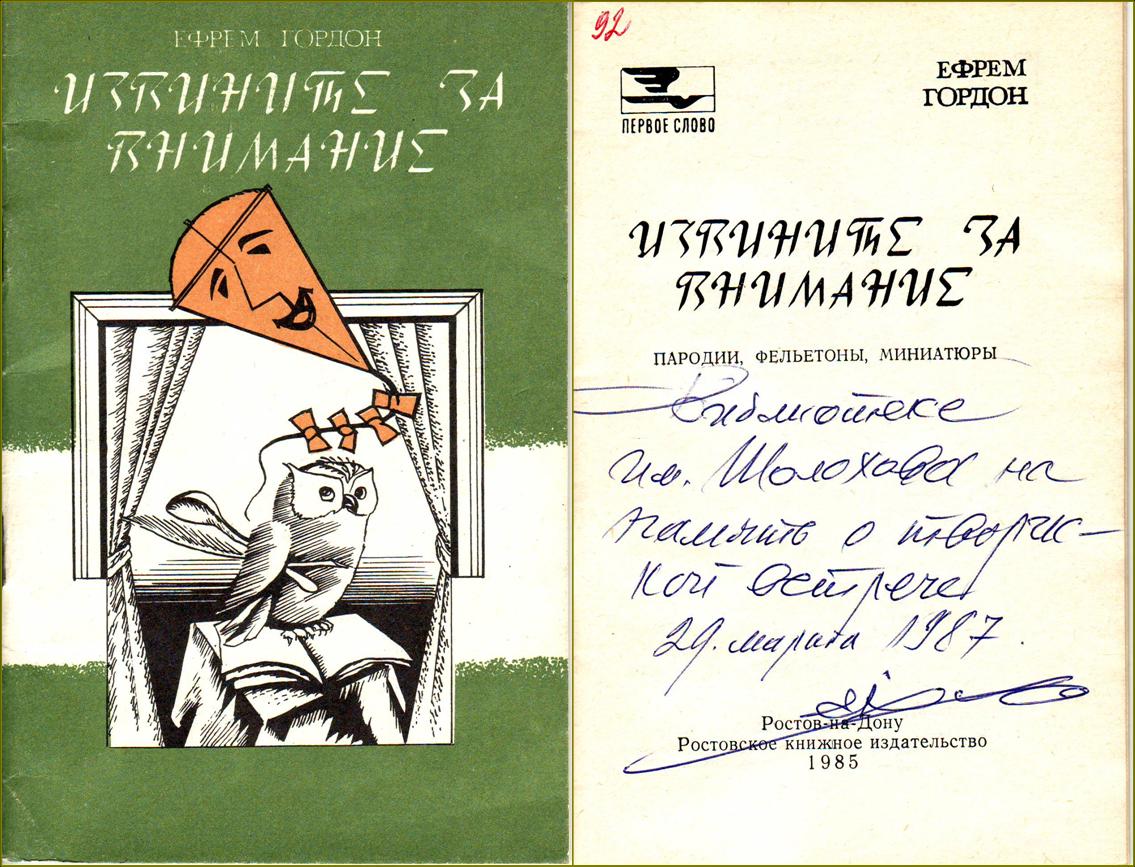 ЕФРЕМ ГОРДОН
ИЗВИНИТЕ ЗА
ВНИМАНИЕ
92
ПЕРВОЕ СЛОВО
ЕФРЕМ
ГОРДОН
ИЗВИНИТЕ ЗА
ВНИМАНИЕ
ПАРОДИИ, ФЕЛЬЕТОНЫ, МИНИАТЮРЫ
Библиотеке
им. Шолохова на
память о творчес-
кой встрече
29. марта 1987.
Ростов-на-Дону
Ростовское книжное издательство
1985